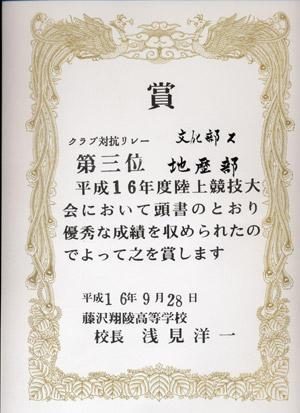 賞
クラブ対抗リレー 文化部
第三位 地歴部
平成16年度陸上競技大
会において頭書のとおり
優秀な成績を収められたの
でよって之を賞します
平成16年9月28日
藤沢翔陵高等学校
校長 浅見洋一